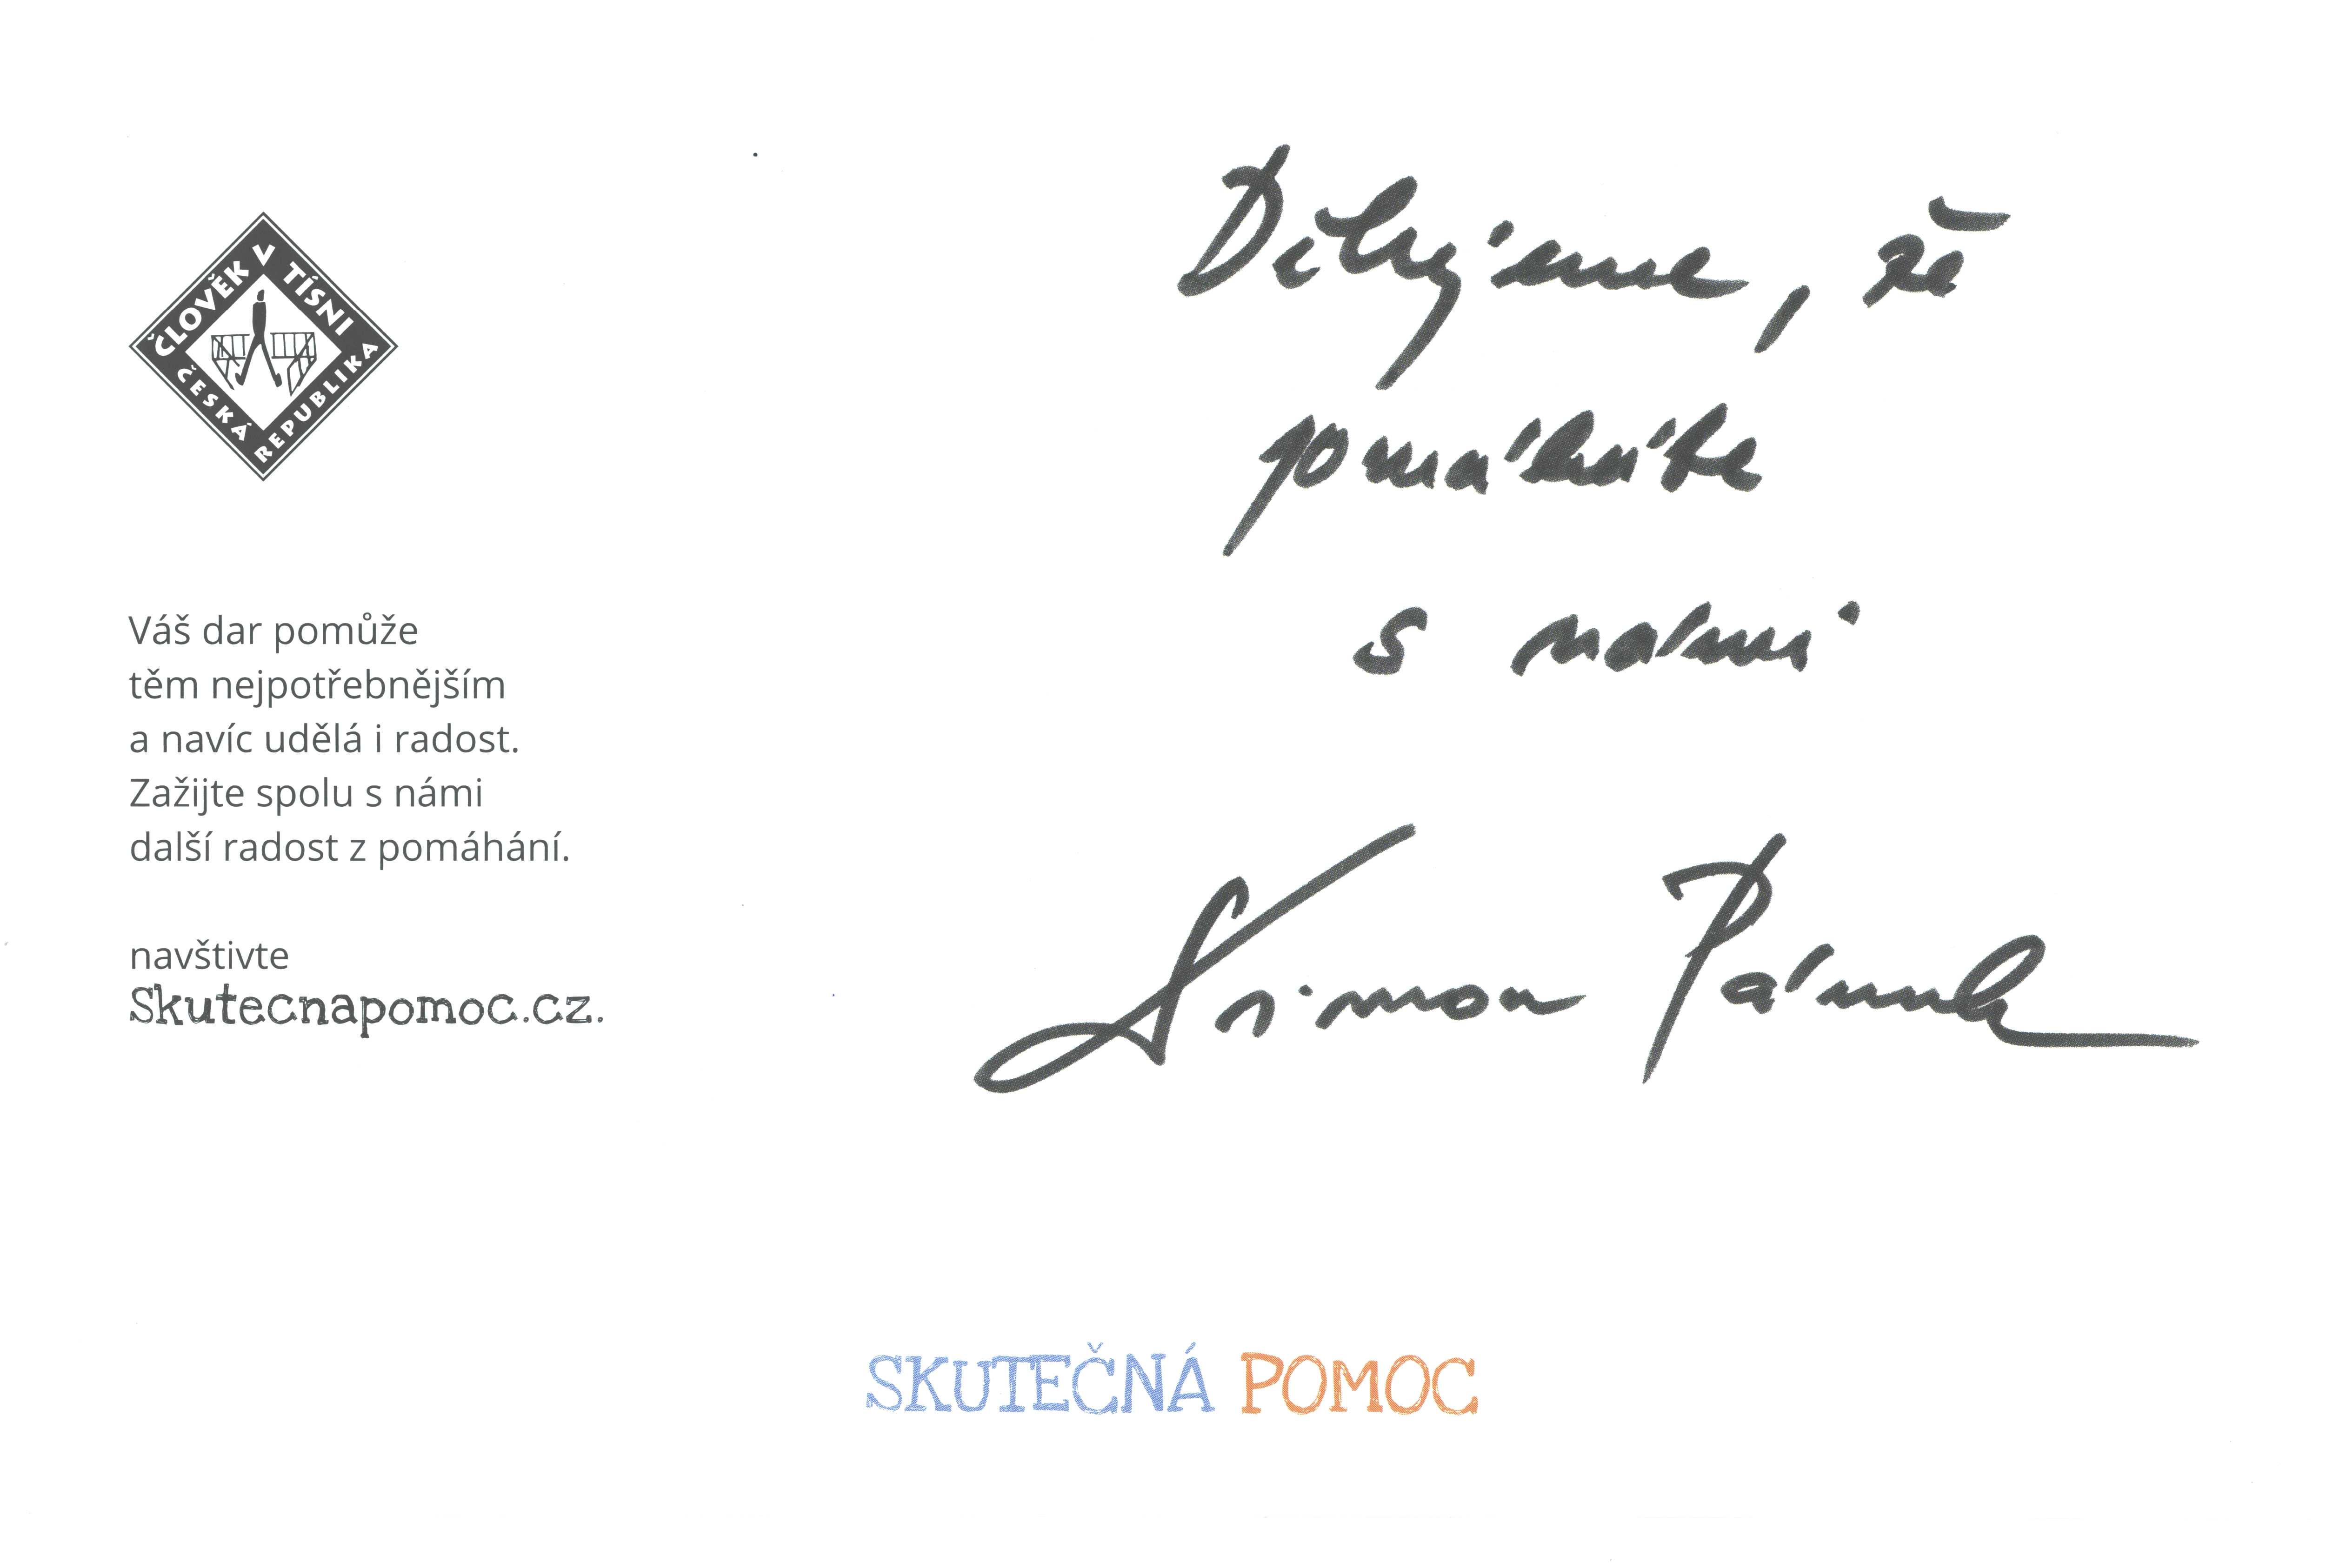 ČLOVĚK V TÍSNI
ČESKÁ REPUBLIKA
Váš dar pomůže
těm nejpotřebnějším
a navíc udělá i radost.
Zažijte spolu s námi
další radost z pomáhání.
navštivte
Skutecnapomoc.cz.
Děkujeme, že
pomáháte
s námi
Šimon Pánek
SKUTEČNÁ POMOC